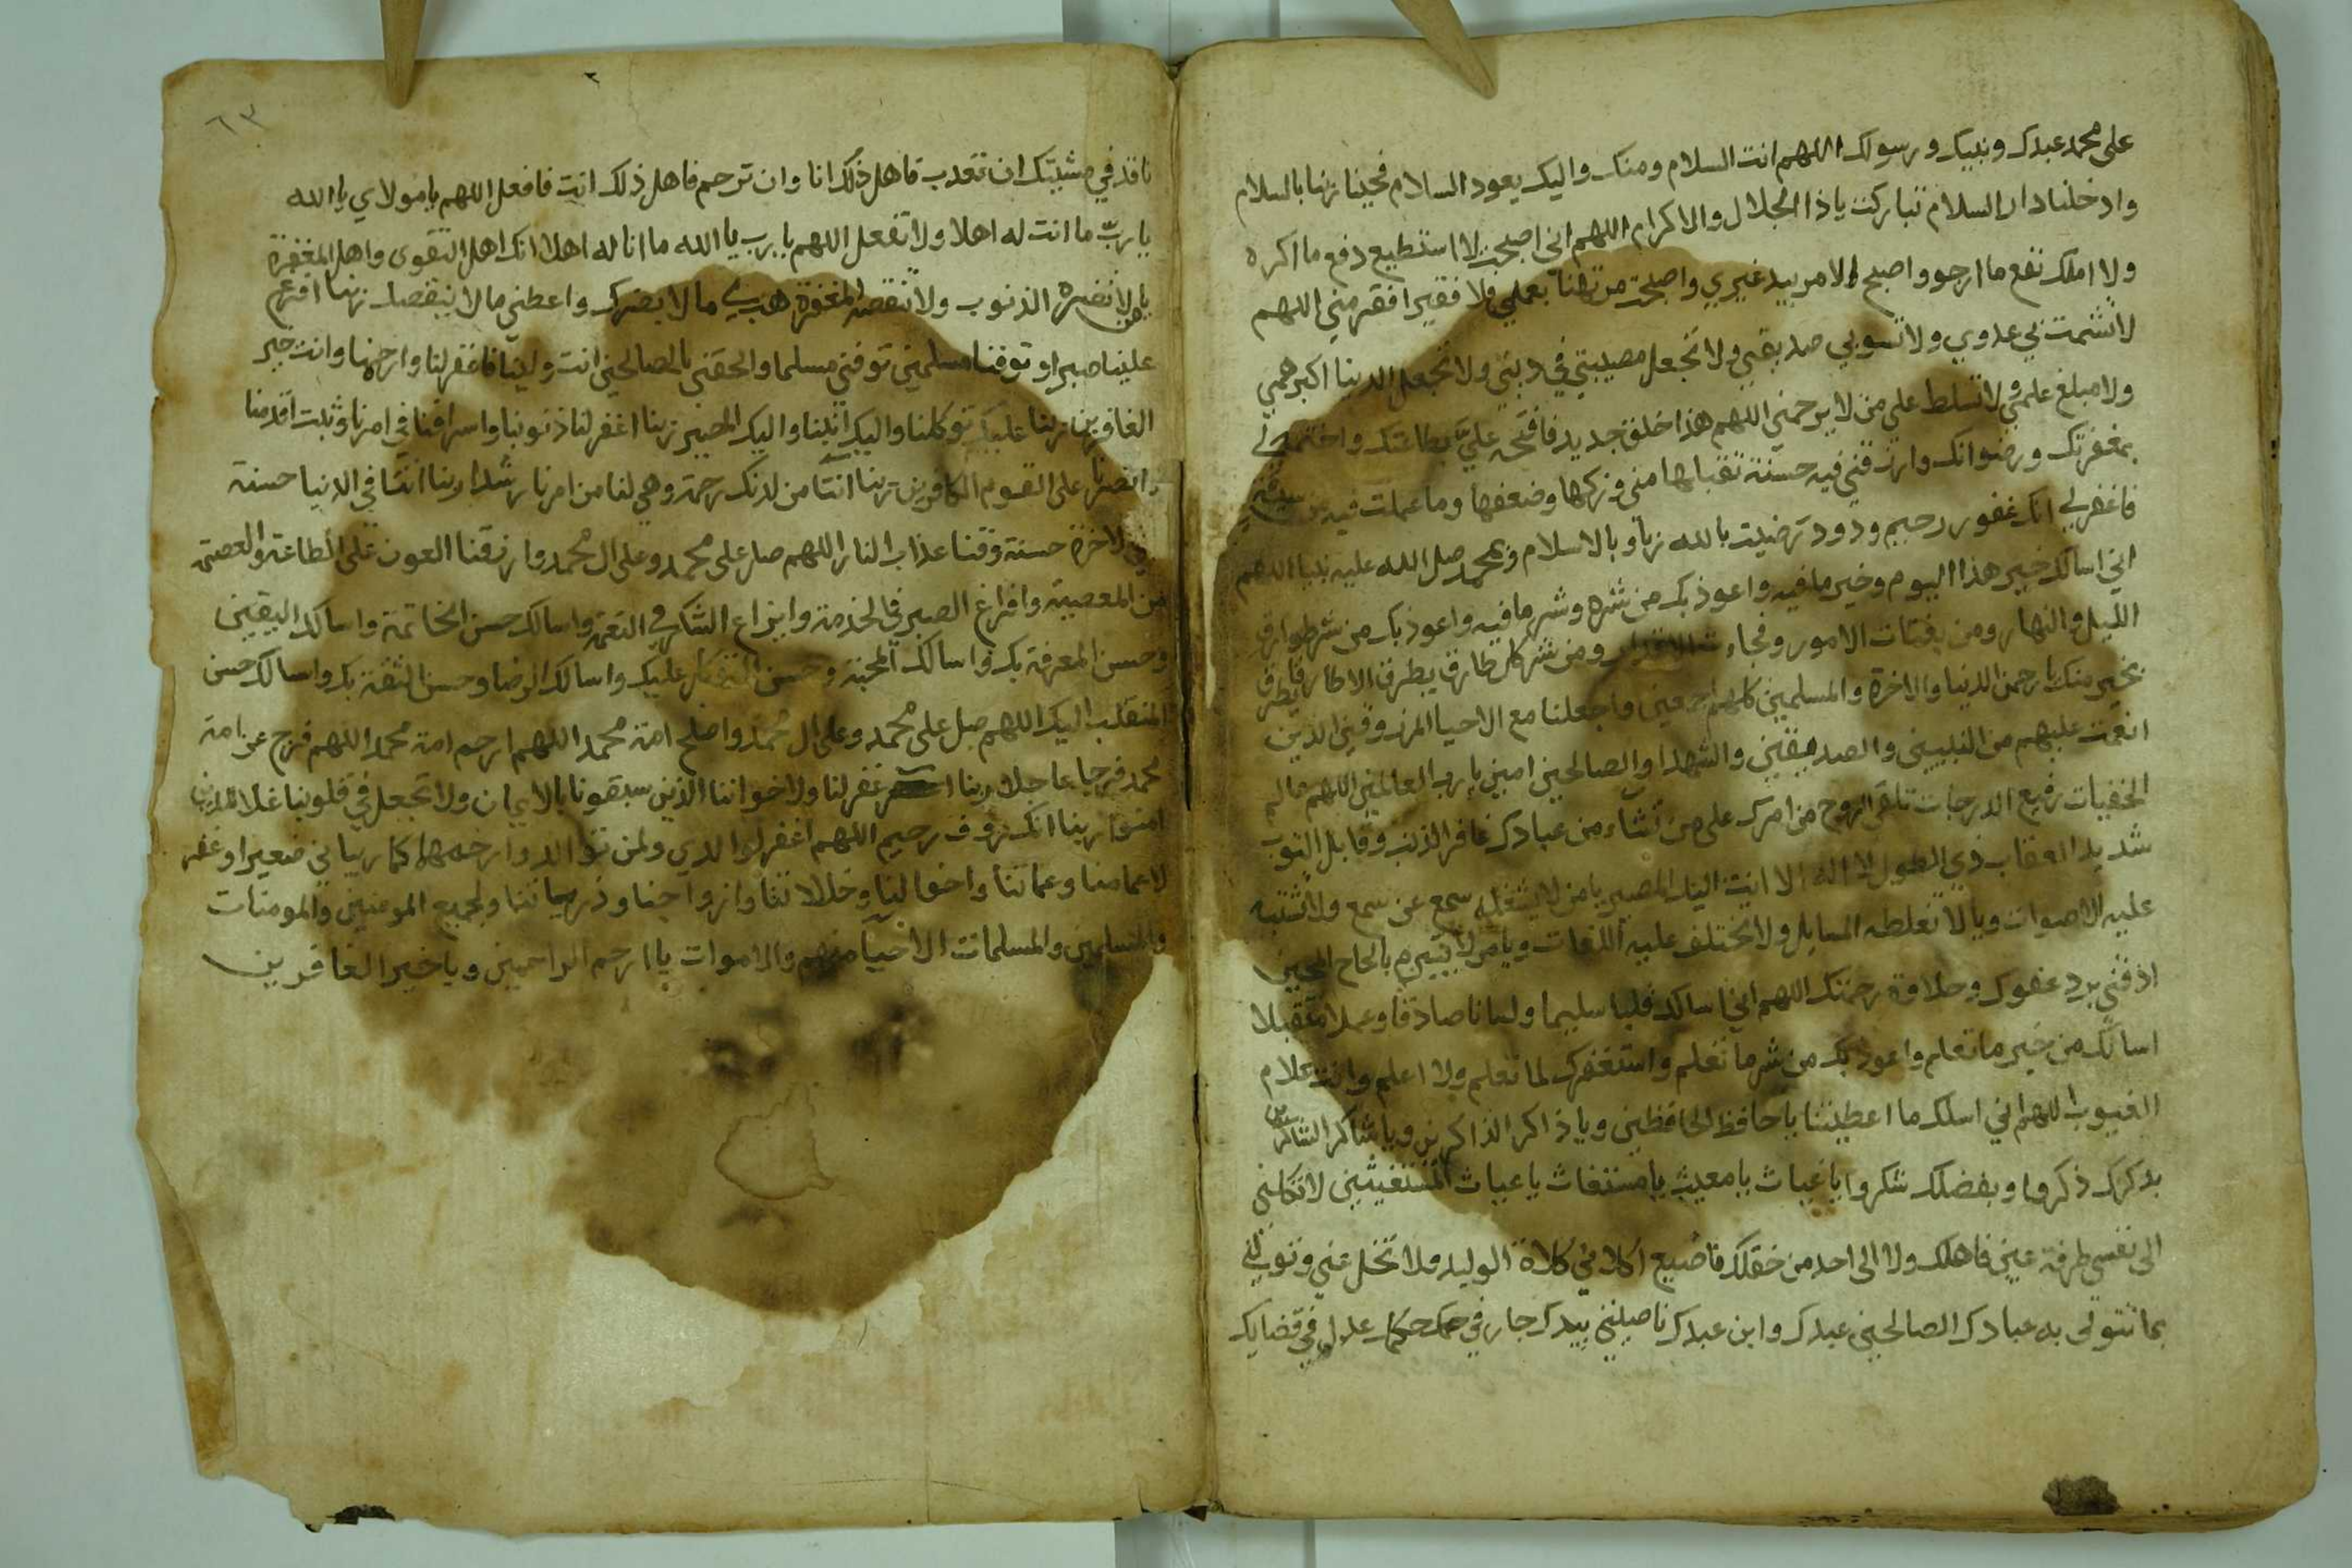 على محمد عبدك ونبيك ورسولك اللهم انت السلام ومنك واليك يعود السلام فحينا ربنا بالسلام
وادخلنا دار السلام تباركت ياذا الجلال والاكرام اللهم اني اصبحت لا استطيع دفع ما اكره
ولا املك نفع ما ارجوو اصبح الامر بيد غيري واصبحت مرتهنا بعملي فلا فقيرا افقر مني اللهم
لا تشمت بي عدوي ولا تسوبي صديقي ولا تجعل مصيبتي في ديني ولا تجعل الدنيا اكبر همي
ولا مبلغ علمي ولا تسلط علي من لا يرحمني اللهم هذا خلق جديد فافتحه علي بطاعتك واختمه لي
بمغفرتك ورضوانك وارزقني فيه حسنة تقبلها مني وزكها وضعفها وما عملت فيه من سيئة
فاغفر لي انك غفور رحيم ودود رضيت بالله ربا وبالاسلام وبمحمد صلى الله عليه نبيا اللهم
اني اسالك خير هذا اليوم وخير ما فيه واعوذ بك من شره وشر ما فيه واعوذ بك من شر طوارق
الليل والنهار ومن بغتات الامور وفجاءت الاقدار ومن شر كل طارق يطرق الا طارقا يطرق
بخير منك يا رحمن الدنيا والاخرة والمسلمين كلهم اجمعين واجعلنا مع الاحيا المرزوقين الذين
انعمت عليهم من النبيين والصديقين والشهدا والصالحين امين يا رب العالمين اللهم عالم
الخفيات رفيع الدرجات تلقى الروح من امرك على من تشاء من عبادك غافر الذنب وقابل التوب
شديد العقاب ذي الطول لا اله الا انت اليك المصير يا من لا يشغله سمع عن سمع ولا تشتبه
عليه الاصوات ويا لا تغلطه المسايل ولا تختلف عليه اللغات ويا من لا يتبرم بالحاح الملحين
اذقني برد عفوك وحلاوة رحمتك اللهم اني اسالك قلبا سليما ولسانا صادقا وعملا متقبلا
اسالك من خير ما تعلم واعوذ بك من شر ما تعلم واستغفرك لما تعلم ولا اعلم وانت علام
الغيوب اللهم اني اسلك ما اعطيتنا يا حافظ الحافظين ويا ذاكر الذاكرين ويا شاكر الشاكرين
بذكرك ذكروا وبفضلك شكروا يا غياث يا مغيث يا مستغاث يا غياث المستغيثين لا تكلني
الى نفسي طرفة عين فاهلك ولا الى احد من خقلك فاضيع اكلاني كلاة الوليد ولا تخل عني وتولني
بما تتولى به عبادك الصالحين عبدك وابن عبدك ناصيتي بيدك جار في حكمك عدل في قضايك
٦٣
نافذ في مشيتك ان تعذب فاهل ذلك انا وان ترحم فاهل ذلك انت فافعل اللهم يا مولاي يا الله
يا رب ما انت له اهلا ولا تفعل اللهم يا رب يا الله ما انا له اهلا انك اهل التقوى واهل المغفرة
يا من لا تضره الذنوب ولا تنقصه المغفرة هب لي ما لا يضرك واعطني ما لا ينقصك ربنا افرغ
علينا صبرا و توفنا مسلمين توفني مسلما والحقني بالصالحين انت ولينا فاغفر لنا وارحمنا وانت خير
الغافرين ربنا عليك توكلنا واليك انبنا واليك المصير ربنا اغفر لنا ذنوبنا واسرافنا في امرنا وثبت اقدمنا
وانصرنا على القوم الكافرين ربنا اتنا من لدنك رحمة وهي لنا من امرنا رشدا ربنا اتنا في الدنيا حسنة
وفي الاخرة حسنة وقنا عذاب النار اللهم صل على محمد وعلى ال محمد وارزقنا العون على الطاعة والعصمة
من المعصية وافراغ الصبر في الخدمة وايزاع الشكر في النعمة واسالك حسن الخاتمة واسالك اليقين
وحسن المعرفة بك واسالك المحبة وحسن التوكل عليك واسالك الرضا وحسن الثقة بك واسالك حسن
المنقلب اليك اللهم صل على محمد وعلى ال محمد واصلح امة محمد اللهم ارحم امة محمد اللهم فرج عن امة
محمد فرجا عاجلا ربنا اغفر لنا ولاخواننا الذين سبقونا بالايمان ولا تجعل في قلوبنا غلا للذين
امنوا ربنا انك روف رحيم اللهم اغفر لوالدي ولمن توالدوا وارحمهما كما ربياني صغيرا وغفر
لاعمامنا وعماتنا واخوالنا وخالاتنا وازواجنا وذرياتنا ولجميع المومنين والمومنات
والمسلمين والمسلمات الاحيا منهم والاموات يا ارحم الراحمين ويا خير الغافرين